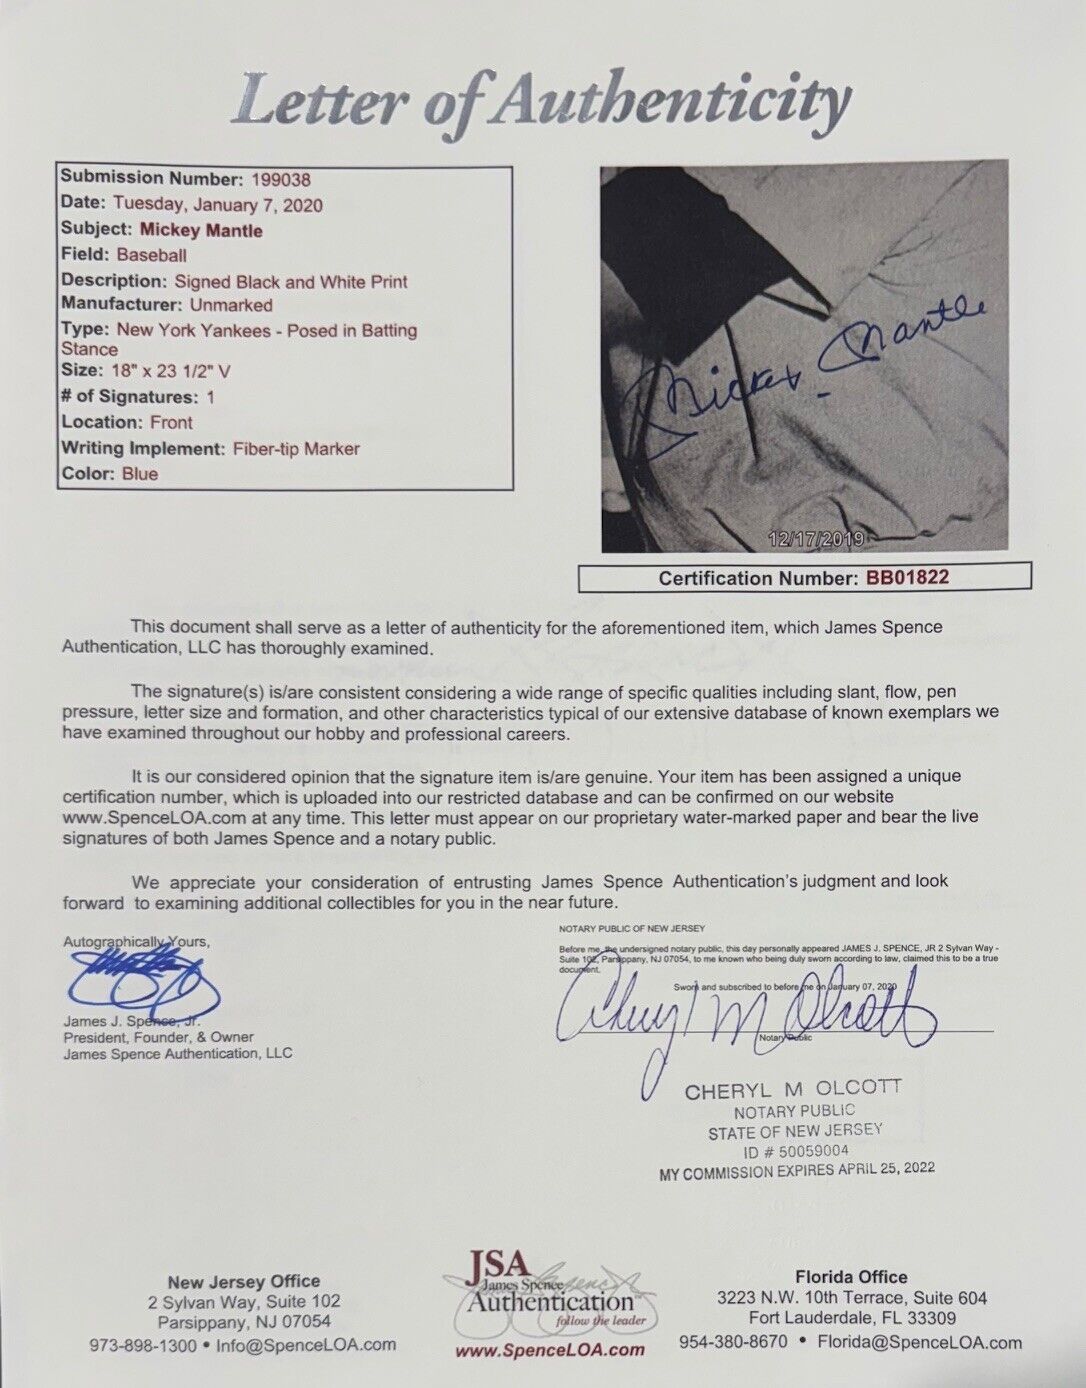 Letter of Authenticity
Submission Number: 199038
Date: Tuesday, January 7, 2020
Subject: Mickey Mantle
Field: Baseball
Description: Signed Black and White Print
Manufacturer: Unmarked
Type: New York Yankees - Posed in Batting
Stance
Size: 18" x 23 1/2" V
# of Signatures: 1
Location: Front
Writing Implement: Fiber-tip Marker
Color: Blue
Mickey Mantle
12/17/2019
Certification Number: BB01822
This document shall serve as a letter of authenticity for the aforementioned item, which James Spence
Authentication, LLC has thoroughly examined.
The signature(s) is/are consistent considering a wide range of specific qualities including slant, flow, pen
pressure, letter size and formation, and other characteristics typical of our extensive database of known exemplars we
have examined throughout our hobby and professional careers.
It is our considered opinion that the signature item is/are genuine. Your item has been assigned a unique
certification number, which is uploaded into our restricted database and can be confirmed on our website
www.SpenceLOA.com at any time. This letter must appear on our proprietary water-marked paper and bear the live
signatures of both James Spence and a notary public.
We appreciate your consideration of entrusting James Spence Authentication's judgment and look
forward to examining additional collectibles for you in the near future.
Autographically Yours,
James J. Spence, Jr.
President, Founder, & Owner
James Spence Authentication, LLC
NOTARY PUBLIC OF NEW JERSEY
Before me, the undersigned notary public, this day personally appeared JAMES J. SPENCE, JR 2 Sylvan Way -
Suite 102, Parsippany, NJ 07054, to me known who being duly sworn according to law, claimed this to be a true
document.
Sworn and subscribed to before me on January 07, 2020
Cheryl M Olcott
Notary Public
CHERYL M OLCOTT
NOTARY PUBLIC
STATE OF NEW JERSEY
ID # 50059004
MY COMMISSION EXPIRES APRIL 25, 2022
New Jersey Office
2 Sylvan Way, Suite 102
Parsippany, NJ 07054
973-898-1300 • Info@SpenceLOA.com
JSA
James Spence
Authentication
follow the leader
www.SpenceLOA.com
Florida Office
3223 N.W. 10th Terrace, Suite 604
Fort Lauderdale, FL 33309
954-380-8670 • Florida@SpenceLOA.com